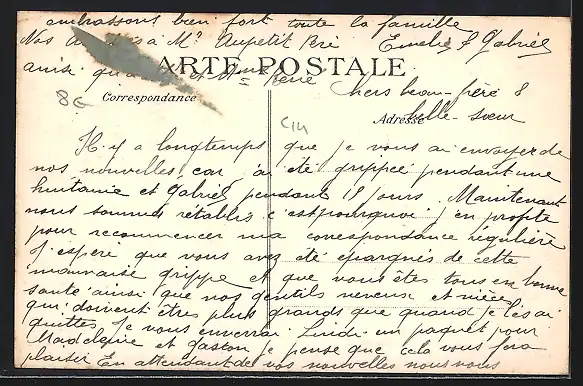 embrassons bien fort toute la famille
Nos amitiés à Mr Aupetit Père Emelie & Gabriel
ainsi qu'à et Mme Père
CARTE POSTALE
8G
Correspondance
C14
Adresse
Chers beau-frère &
belle-sœur
Il y a longtemps que je vous ai envoyer de
nos nouvelles car j'ai été grippée pendant une
huitaine et Gabriel pendant 18 jours. Maintenant
nous sommes rétablis c'est pourquoi j'en profite
pour recommencer ma correspondance régulière
J'espère que vous avez été épargnés de cette
mauvaise grippe et que vous êtes tous en bonne
santé ainsi que nos gentils neveux et nièces
qui doivent être plus grands que quand je les ai
quittés Je vous enverrai Lundi un paquet pour
Madeleine et Gaston je pense que cela vous fera
plaisir En attendant de vos nouvelles nous vous